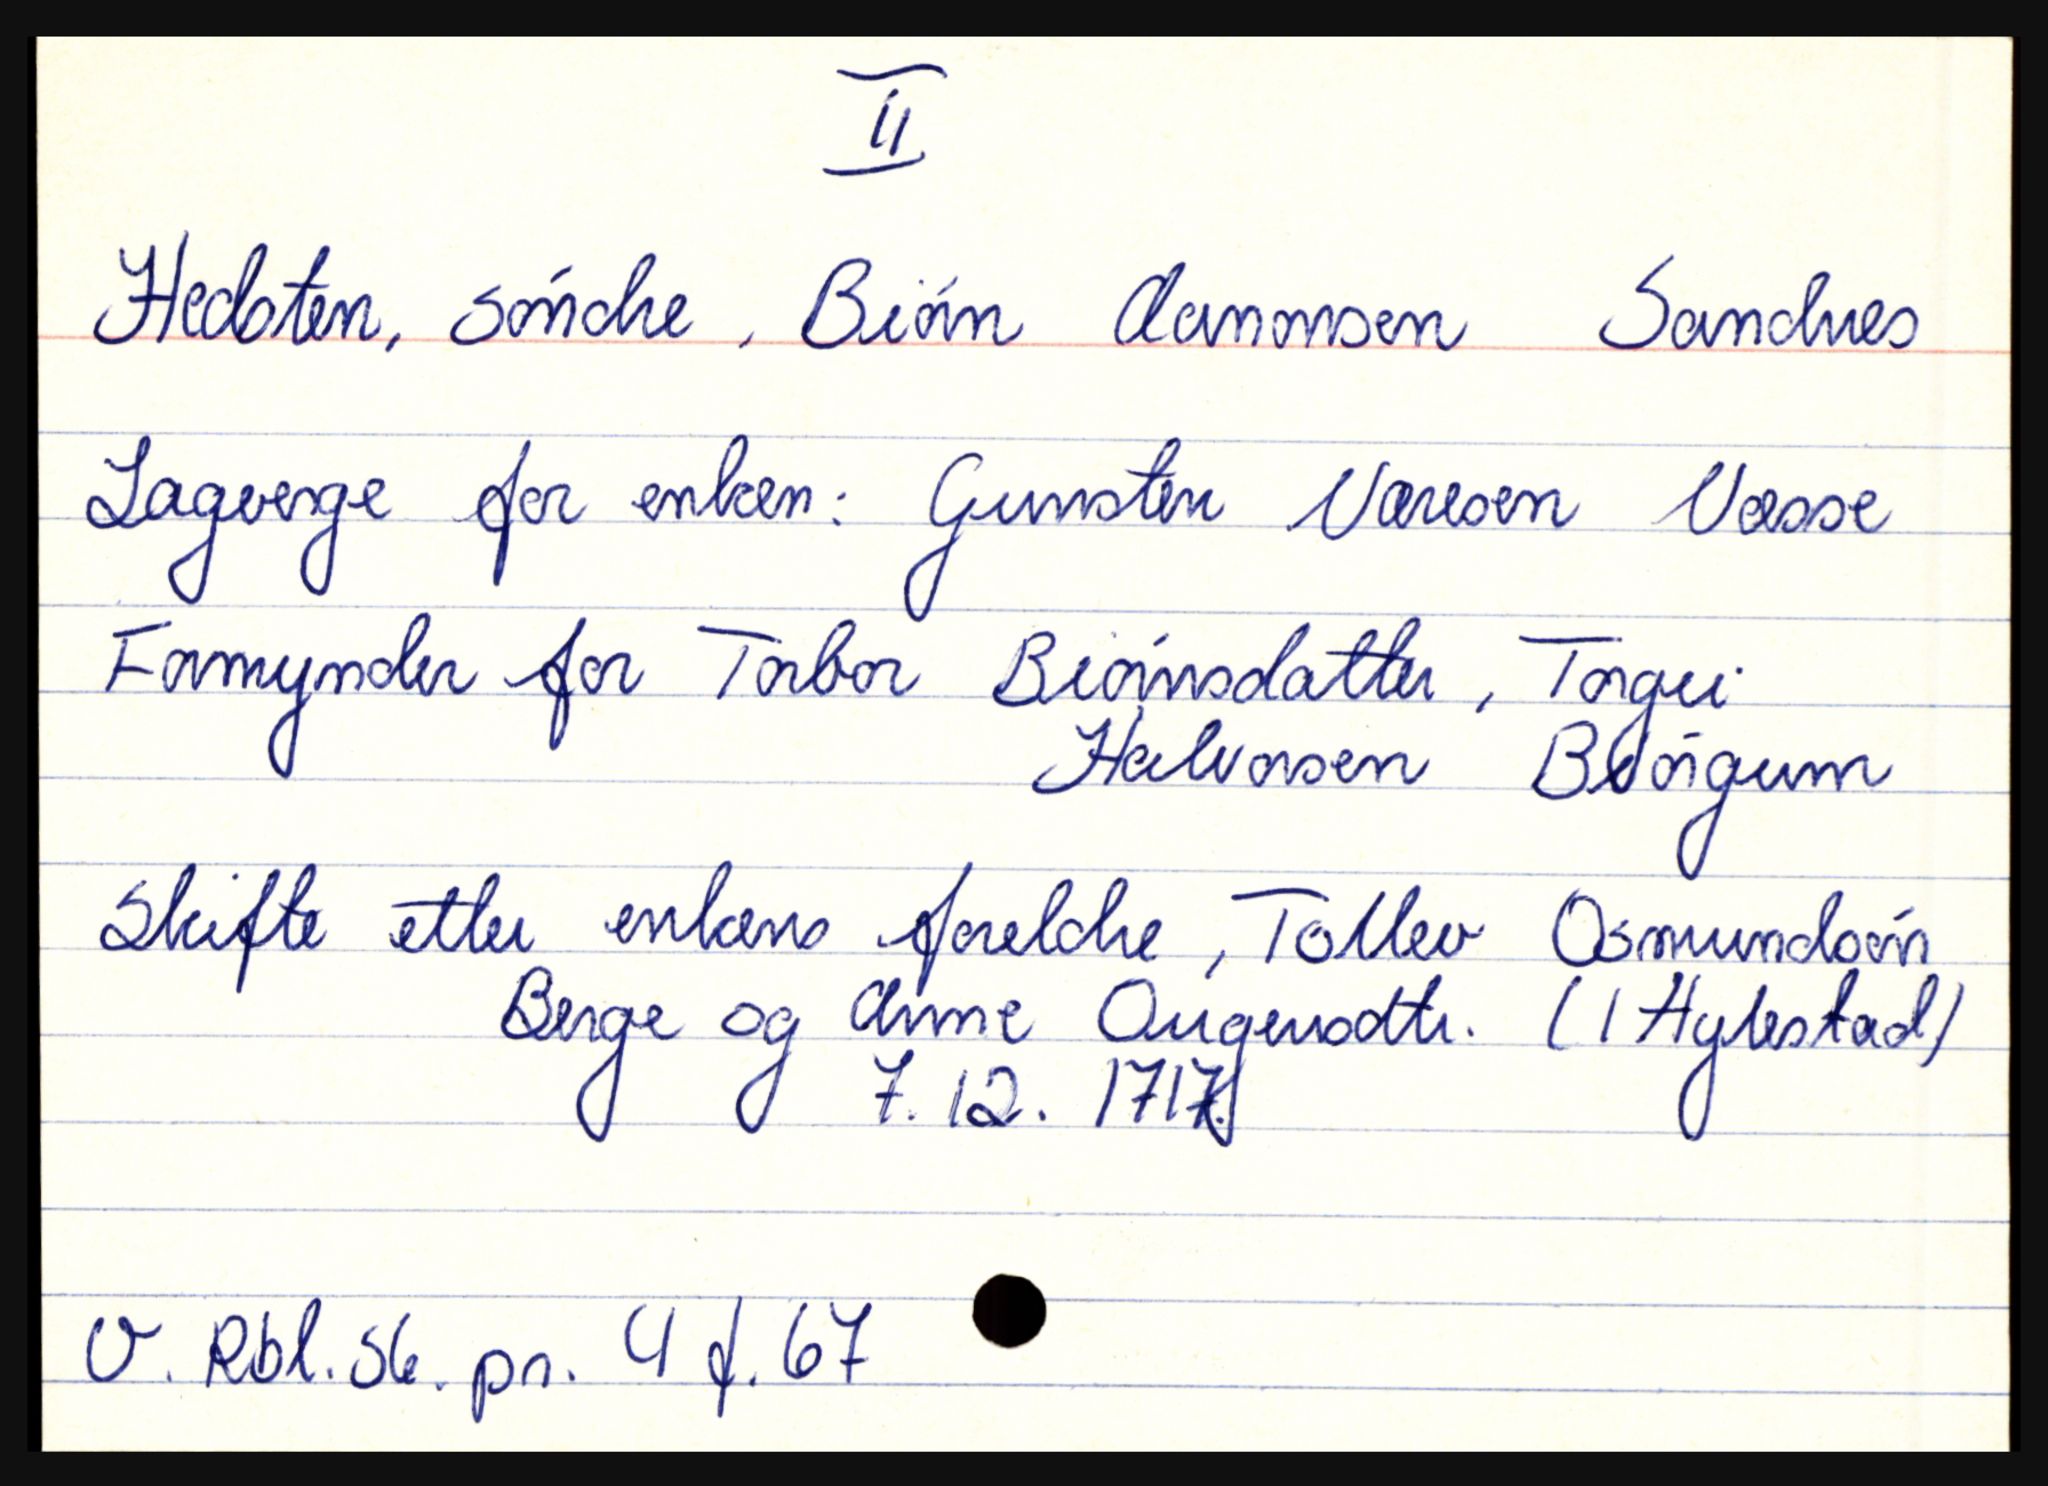 II
Hedsten, söndre, Biörn Aanonsen Sandnes
Lagverge for enken: Gunsten Næresen Næsse
Formynder for Torbor Biörnsdatter, Torgei
Halvorsen Biörgum
Skifte etter enkens foreldre, Tollev Osmundsön
Berge og Anne Ougensdtr. (i Hylestad)
7. 12. 1717
V. Rbl. Sk. pr. 4 f. 67